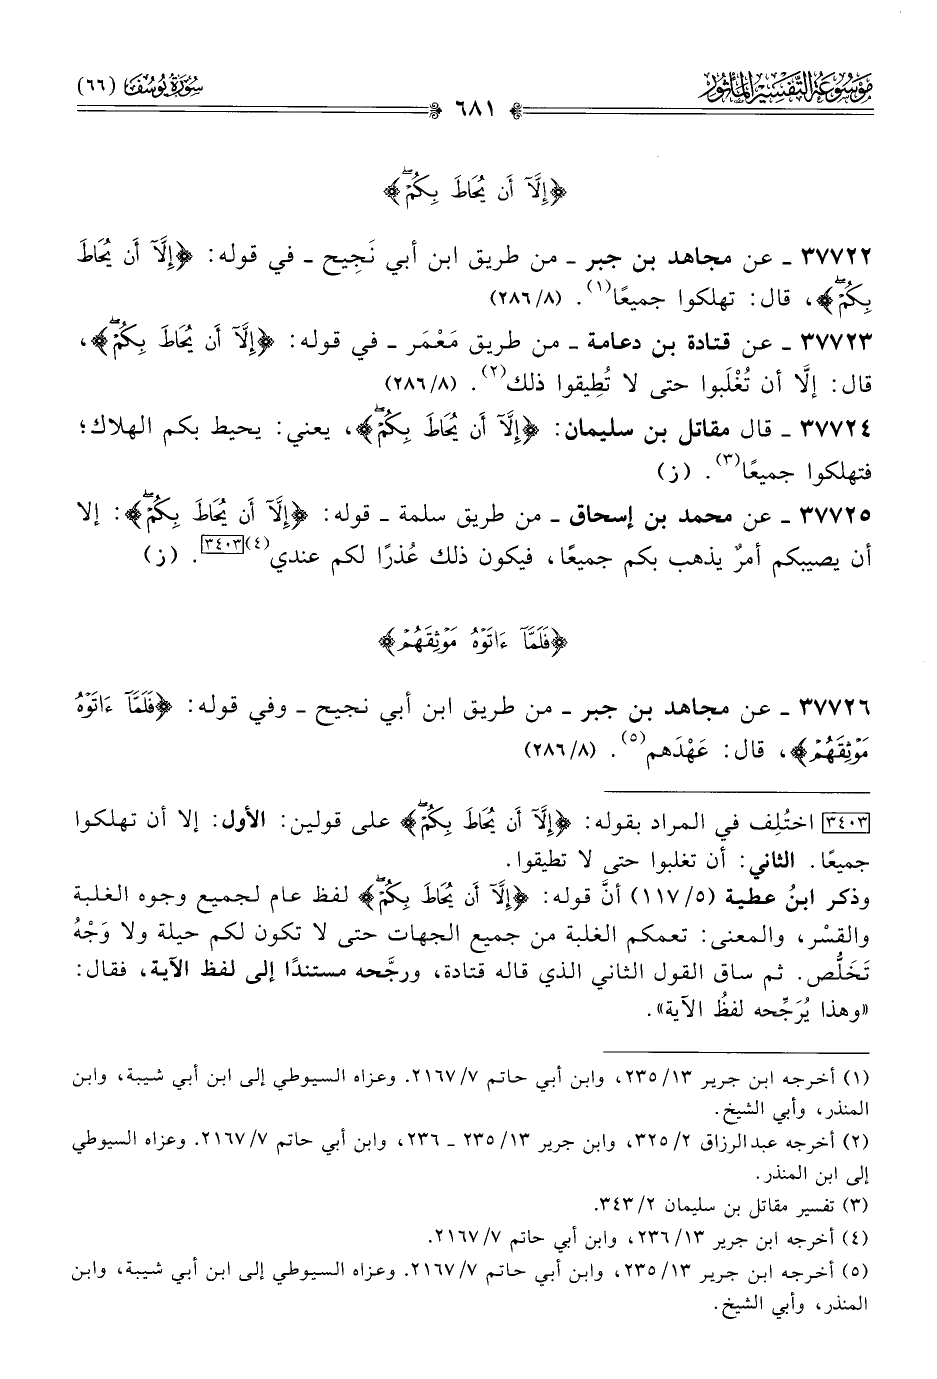 مَوْسُوعَة التَّفْسِير المَأْثُور
سُورَةُ يُوسُف (٦٦)
٦٨١
﴿إِلَّآ أَن يُحَاطَ بِكُمْۖ﴾
٣٧٧٢٢ ـ عن مجاهد بن جبر ـ من طريق ابن أبي نَجِيح ـ في قوله: ﴿إِلَّآ أَن يُحَاطَ
بِكُمْۖ﴾، قال: تهلكوا جميعًا(١). (٨/ ٢٨٦)
٣٧٧٢٣ ـ عن قتادة بن دعامة ـ من طريق مَعْمَر ـ في قوله: ﴿إِلَّآ أَن يُحَاطَ بِكُمْۖ﴾،
قال: إلَّا أن تُغْلَبوا حتى لا تُطِيقوا ذلك(٢). (٨/ ٢٨٦)
٣٧٧٢٤ ـ قال مقاتل بن سليمان: ﴿إِلَّآ أَن يُحَاطَ بِكُمْۖ﴾، يعني: يحيط بكم الهلاك؛
فتهلكوا جميعًا(٣). (ز)
٣٧٧٢٥ ـ عن محمد بن إسحاق ـ من طريق سلمة ـ قوله: ﴿إِلَّآ أَن يُحَاطَ بِكُمْۖ﴾: إلا
أن يصيبكم أمرٌ يذهب بكم جميعًا، فيكون ذلك عُذرًا لكم عندي(٤)[٣٤٠٣]. (ز)
﴿فَلَمَّآ ءَاتَوْهُ مَوْثِقَهُمْ﴾
٣٧٧٢٦ ـ عن مجاهد بن جبر ـ من طريق ابن أبي نجيح ـ وفي قوله: ﴿فَلَمَّآ ءَاتَوْهُ
مَوْثِقَهُمْ﴾، قال: عَهْدَهم(٥). (٨/ ٢٨٦)
[٣٤٠٣] اختُلِف في المراد بقوله: ﴿إِلَّآ أَن يُحَاطَ بِكُمْۖ﴾ على قولين: الأول: إلا أن تهلكوا
جميعًا. الثاني: أن تغلبوا حتى لا تطيقوا.
وذكر ابنُ عطية (٥/ ١١٧) أنَّ قوله: ﴿إِلَّآ أَن يُحَاطَ بِكُمْۖ﴾ لفظ عام لجميع وجوه الغلبة
والقسْر، والمعنى: تعمكم الغلبة من جميع الجهات حتى لا تكون لكم حيلة ولا وَجْهُ
تَخَلُّص. ثم ساق القول الثاني الذي قاله قتادة، ورجَّحه مستندًا إلى لفظ الآية، فقال:
«وهذا يُرَجِّحه لفظُ الآية».
(١) أخرجه ابن جرير ١٣/ ٢٣٥، وابن أبي حاتم ٧/ ٢١٦٧. وعزاه السيوطي إلى ابن أبي شيبة، وابن
المنذر، وأبي الشيخ.
(٢) أخرجه عبدالرزاق ٢/ ٣٢٥، وابن جرير ١٣/ ٢٣٥ ـ ٢٣٦، وابن أبي حاتم ٧/ ٢١٦٧. وعزاه السيوطي
إلى ابن المنذر.
(٣) تفسير مقاتل بن سليمان ٢/ ٣٤٣.
(٤) أخرجه ابن جرير ١٣/ ٢٣٦، وابن أبي حاتم ٧/ ٢١٦٧.
(٥) أخرجه ابن جرير ١٣/ ٢٣٥، وابن أبي حاتم ٧/ ٢١٦٧. وعزاه السيوطي إلى ابن أبي شيبة، وابن
المنذر، وأبي الشيخ.